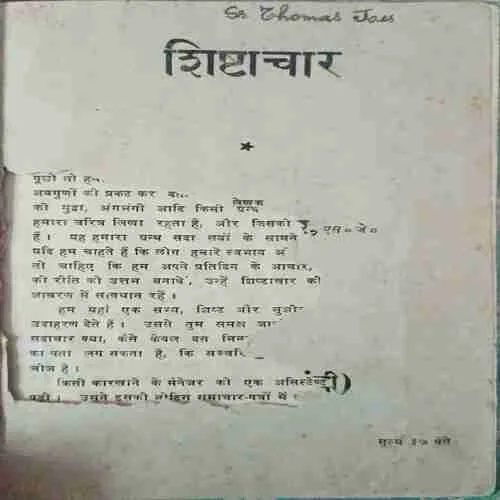 Sr Thomas
शिष्टाचार
*
पूछो तो
अवगुणों को प्रकट कर
की मुद्रा, अंगभंगी आदि किसी ग्रन्थ
लेखक
हमारा चरित्र लिखा रहता है, और जिसको
एस॰ जे॰
हैं । यह हमारा ग्रन्थ सदा सबों के सामने
यदि हम चाहते हैं कि लोग हमारे स्वभाव
तो चाहिए कि हम अपने प्रतिदिन के आचार,
की रीति को उत्तम बनावें, उन्हें शिष्टाचार की
आचरण में सावधान रहें ।
हम यहाँ एक सभ्य, शिष्ट और
उदाहरण देते हैं । उससे तुम समझ
सदाचार क्या, कैसे केवल दस
का पता लग सकता है, कि
चीज है ।
किसी कारखाने के मैनेजर को एक असिस्टेण्ट
पड़ी । उसने इसकी नोटिस समाचार-पत्रों में
मूल्य ३७ पैसे